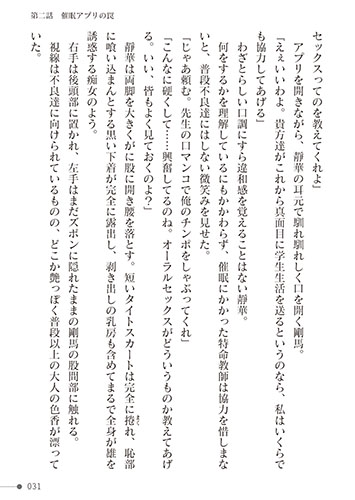 第二話　催眠アプリの罠
セックスってのを教えてくれよ」
アプリを開きながら、静華の耳元で馴れ馴れしく口を開く剛馬。
「えぇいいわよ。貴方達がこれから真面目に学生生活を送るというのなら、私はいくらで
も協力してあげる」
わざとらしい口調にすら違和感を覚えることはない静華。
何をするかを理解しているにもかかわらず、催眠にかかった特命教師は協力を惜しまな
いと、普段不良達にはしない微笑みを見せた。
「じゃあ頼む。先生の口マンコで俺のチンポをしゃぶってくれ」
「こんなに硬くして……興奮してるのね。オーラルセックスがどういうものか教えてあげ
る。いい、皆もよく見ておくのよ？」
静華は両脚を大きくがに股に開き腰を落とす。短いタイトスカートは完全に捲れ、恥部
に喰い込まんとする黒い下着が完全に露出し、剥き出しの乳房も含めてまるで全身が雄を
誘惑する痴女のよう。
右手は後頭部に置かれ、左手はまだズボンに隠れたままの剛馬の股間部に触れる。
視線は不良達に向けられているものの、どこか艶っぽく普段以上の大人の色香が漂って
いた。
031